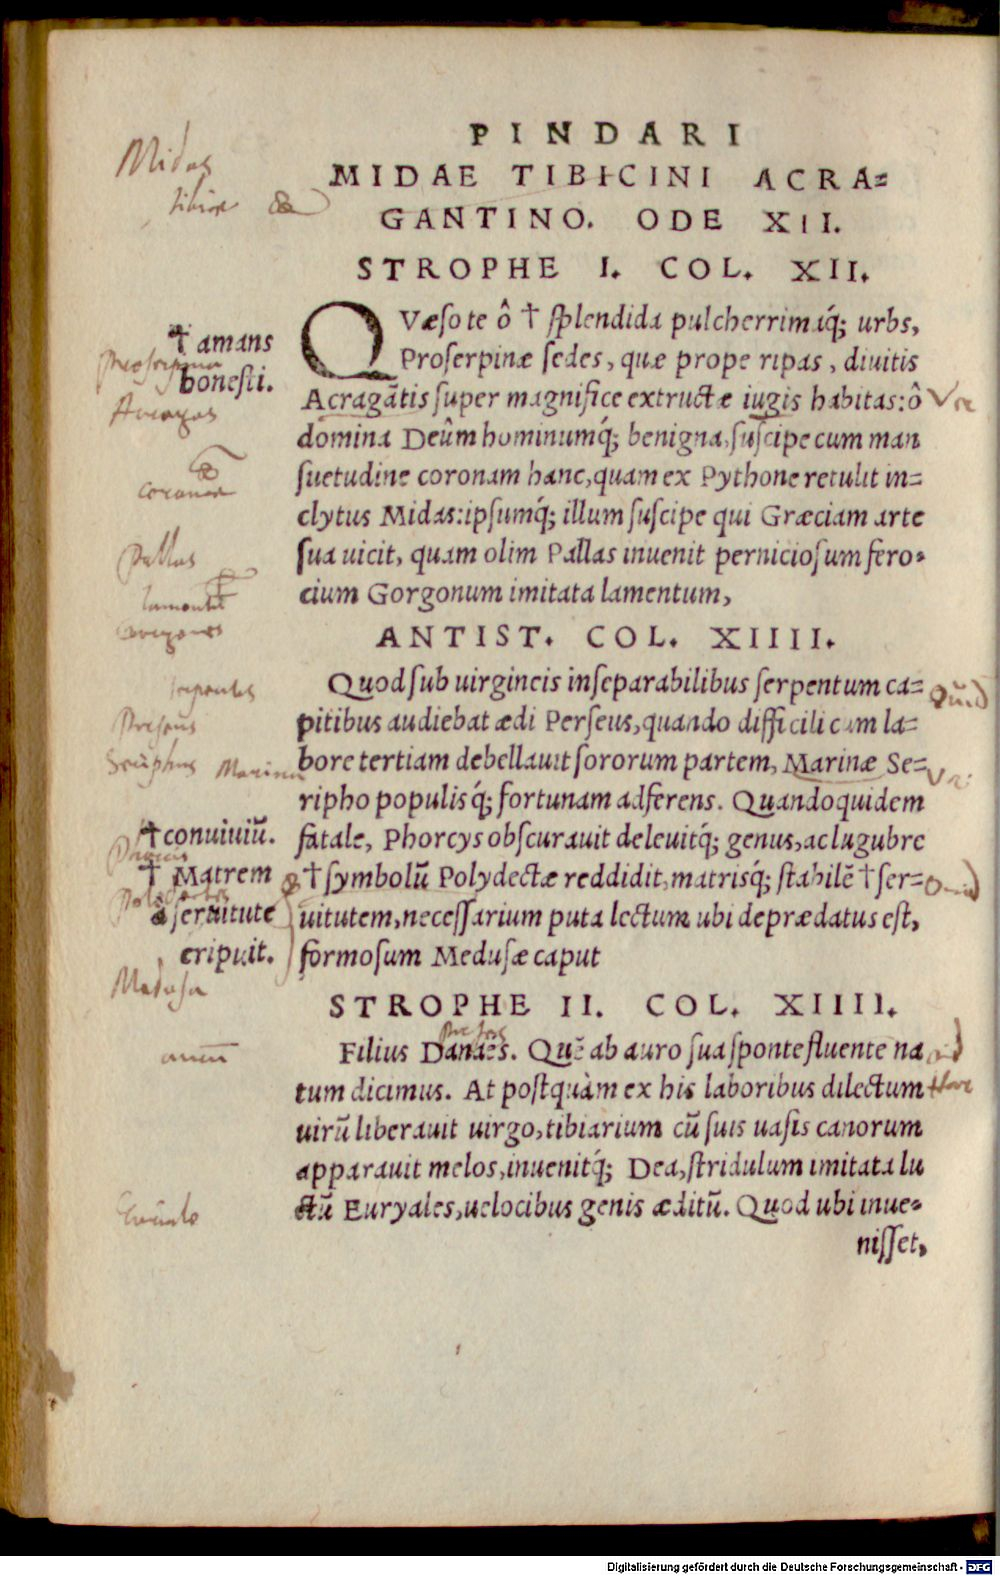 PINDARI
MIDAE TIBICINI ACRA=
GANTINO. ODE XII.
STROPHE I. COL. XII.
QVæso te ô † splendida pulcherrimaq́; urbs,
Proserpinæ sedes, quæ prope ripas, diuitis
Acragātis super magnifice extructæ iugis habitas: ô
domina Deûm hominumq́; benigna, suscipe cum man
suetudine coronam hanc, quam ex Pythone retulit in=
clytus Midas: ipsumq́; illum suscipe qui Græciam arte
sua uicit, quam olim Pallas inuenit perniciosum fero=
cium Gorgonum imitata lamentum,
ANTIST. COL. XIIII.
Quod sub uirgineis inseparabilibus serpentum ca=
pitibus audiebat ædi Perseus, quando difficili cum la=
bore tertiam debellauit sororum partem, Marinæ Se=
ripho populisq́; fortunam adferens. Quandoquidem
fatale, Phorcys obscurauit deleuitq́; genus, ac lugubre
† symbolū Polydectæ reddidit, matrisq́; stabilē † ser=
uitutem, necessarium puta lectum ubi deprædatus est,
formosum Medusæ caput
STROPHE II. COL. XIIII.
Filius Danaës. Quē ab auro sua sponte fluente na
tum dicimus. At postquàm ex his laboribus dilectum
uirū liberauit uirgo, tibiarium cū suis uasis canorum
apparauit melos, inuenitq́; Dea, stridulum imitata lu
ctū Euryales, uelocibus genis æditū. Quod ubi inue=
nisset,
† amans
honesti.
† conuiuiū.
† Matrem
a seruitute
eripuit.
Midas
tibiæ
Proserpina
Acragas
corona
Pallas
Gorgones
serpentes
Perseus
Seriphus
Marina
Phorcis
Polydectes
Medusa
Quid
Digitalisierung gefördert durch die Deutsche Forschungsgemeinschaft - DFG